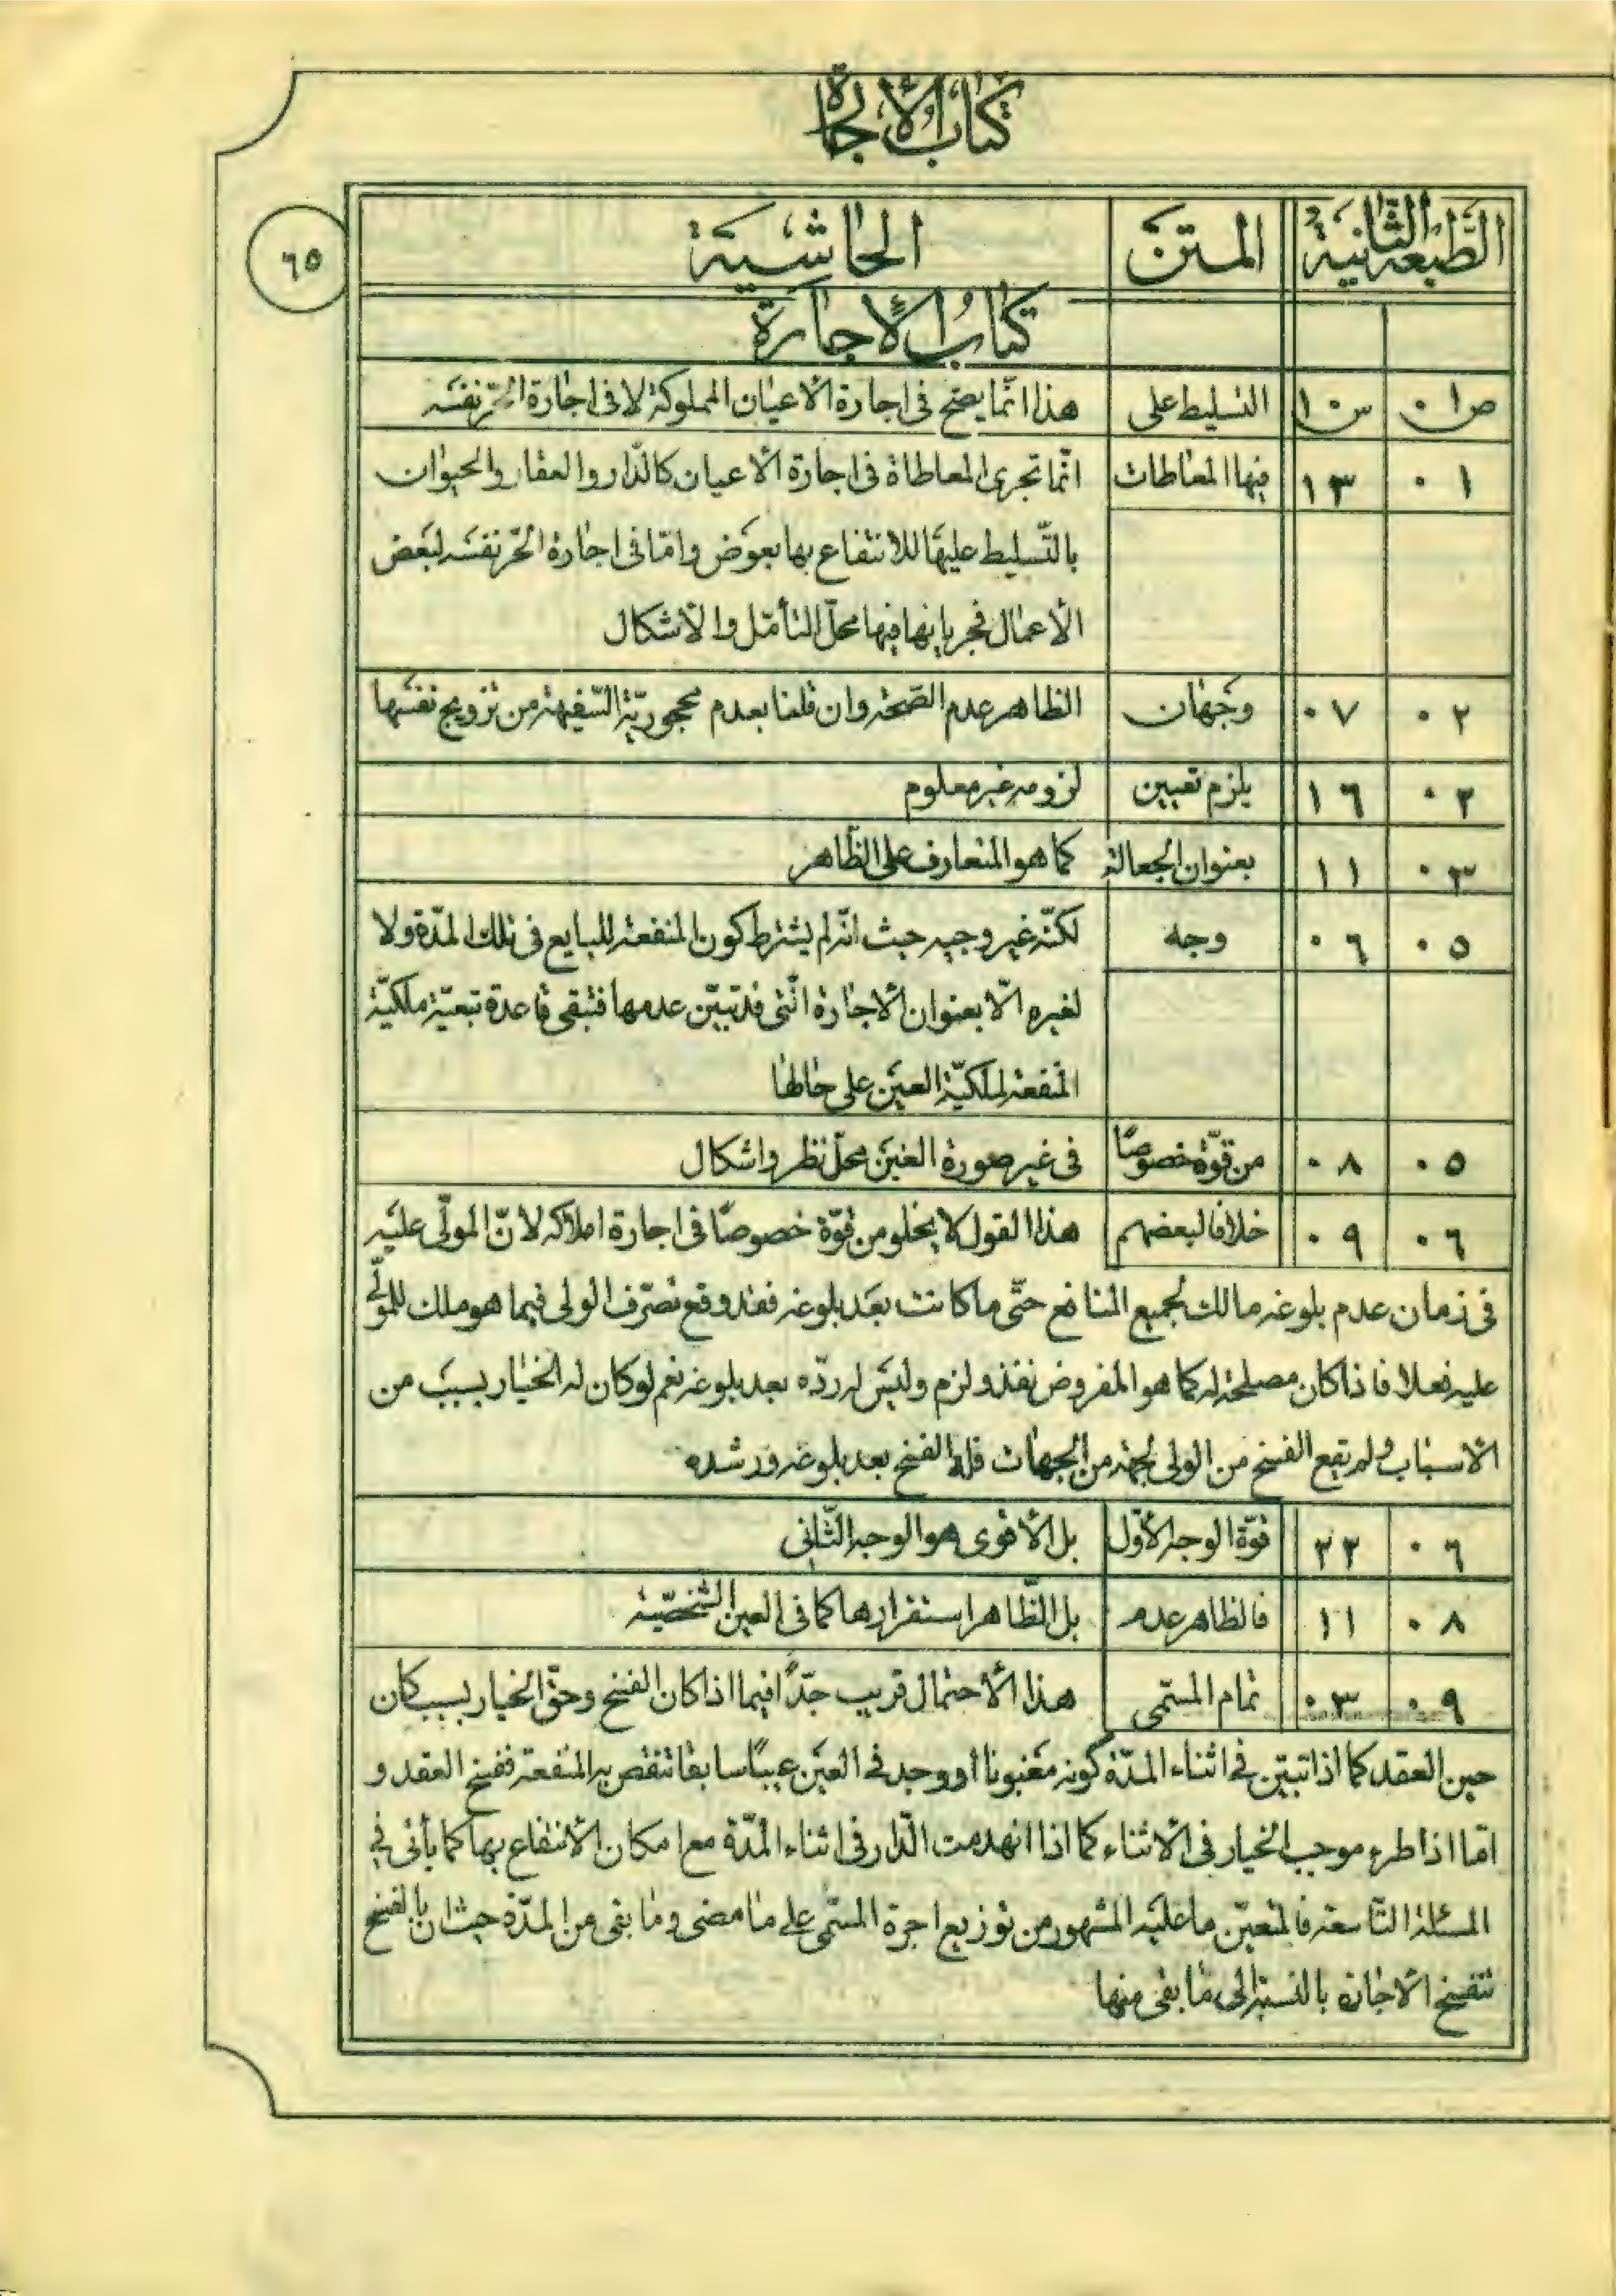 كتاب الإجارة
٦٥
الطّبعة الثّانية المتن الحاشية
كتاب الإجارة
ص٠١ س١٠ التسليط على هذا انّما يصحّ فى اجارة الأعيان المملوكة لا فى اجارة الحرّ نفسه
٠١ ١٣ فيها المعاطات انّما تجرى المعاطاة فى اجارة الأعيان كالدّار والعقار والحيوان
بالتّسليط عليها للانتفاع بها بعوض وامّا فى اجارة الحرّ نفسه لبعض
الأعمال فجريانها فيها محلّ التأمّل والأشكال
٠٢ ٠٧ وجهان الظاهر عدم الصّحة وان قلنا بعدم محجوريّة السّفيهة من تزويج نفسها
٠٢ ١٦ يلزم تعيين لزومه غير معلوم
٠٣ ١١ بعنوان الجعالة كما هو المتعارف على الظّاهر
٠٥ ٠٦ وجه لكنّه غير وجيه حيث انّه لم يشترط كون المنفعة للبايع فى تلك المدّة ولا
لغيره الّا بعنوان الأجارة الّتى قد تبيّن عدمها فتبقى قاعدة تبعيّة ملكيّة
المنفعة لملكيّة العين على حالها
٠٥ ٠٨ من قوّة خصوصًا فى غير صورة الغبن محلّ نظر واشكال
٠٦ ٠٩ خلافا لبعضهم هذا القول لا يخلو من قوّة خصوصًا فى اجارة املاكه لانّ المولّى عليه
فى زمان عدم بلوغه مالك لجميع المنافع حتّى ما كانت بعد بلوغه فقد وقع تصرّف الولى فيما هو ملك للمولّى
عليه فعلا فاذا كان مصلحة له كما هو المفروض نفذ ولزم وليس له ردّه بعد بلوغه نعم لو كان له الخيار بسبب من
الأسباب ولم يقع الفسخ من الولى لجهة من الجهات فله الفسخ بعد بلوغه ورشده
٠٦ ٢٢ قوّة الوجه الأوّل بل الأقوى هو الوجه الثّانى
٠٨ ١١ فالظاهر عدم بل الظّاهر استقرارها كما فى العين الشّخصيّة
٠٩ ٠٣ تمام المسمّى هذا الأحتمال قريب جدّاً فيما اذا كان الفسخ وحقّ الخيار بسبب كان
حين العقد كما اذا تبيّن فى اثناء المدّة كونه مغبونا او وجد فى العين عيبًا سابقا تنقص به المنفعة ففسخ العقد و
امّا اذا طرء موجب الخيار فى الأثناء كما اذا انهدمت الدّار فى اثناء المدّة مع امكان الأنتفاع بها كما يأتى فى
المسئلة التّاسعة فالمتعيّن ما عليه المشهور من توزيع اجرة المسمّى على ما مضى وما بقى من المدّة حيث ان بالفسخ
تنفسخ الأجارة بالنسبة الى ما بقى منها